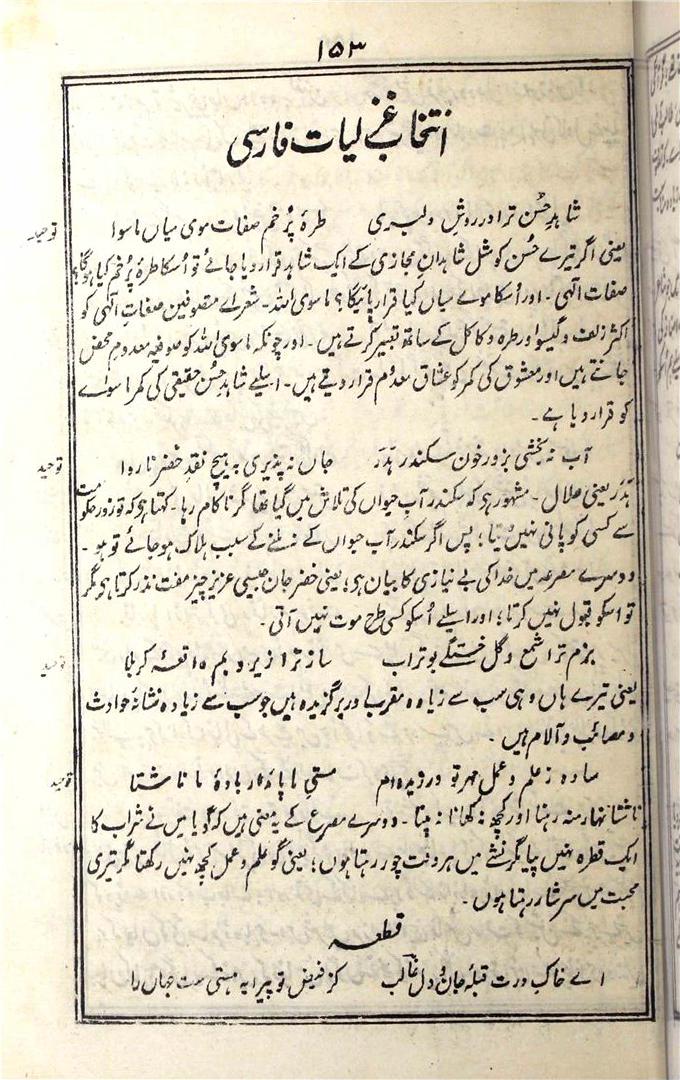 ۱۵۳
انتخاب غزلیات فارسی
شاہدِ حُسن ترا در روشِ دلبری    طرۂ پُرخم صفات موی میاں ماسوا
توحید
یعنی اگر تیرے حُسن کو مثل شاہدانِ مجازی کے ایک شاہد قرار دیا جائے تو اُسکا طرۂ پُرخم کیا ہوگا؟
صفات الٰہی۔ اور اُسکا موے میاں کیا قرار پائیگا؟ ماسوی اللہ۔ شعراے متصوفین صفاتِ الٰہی کو
اکثر زلف و گیسو اور طرہ و کاکل کے ساتھ تعبیر کرتے ہیں۔ اور چونکہ ماسوی اللہ کو صوفیہ معدوم محض
جانتے ہیں اور معشوق کی کمر کو عشاق معدوم قرار دیتے ہیں۔ اسلیے شاہدِ حُسن حقیقی کی کمر ماسواے
کو قرار دیا ہے۔
آب نہ بخشی بزور خون سکندر ہَدَر    جاں نہ پذیری بہ ہیچ نقدِ خضر ناروا
توحید
ہَدَر یعنی حلال۔ مشہور ہے کہ سکندر آب حیواں کی تلاش میں گیا تھا مگر ناکام رہا۔ کہتا ہے کہ تو زور حکومت
سے کسی کو پانی نہیں دیتا؛ پس اگر سکندر آب حیواں کے نہ ملنے کے سبب ہلاک ہو جائے تو ہو۔
دوسرے مصرعہ میں خدا کی بے نیازی کا بیان ہے؛ یعنی خضر جان جیسی عزیز چیز مفت نذر کرتا ہے مگر
تو اسکو قبول نہیں کرتا؛ اور اسلیے اُسکو کسی طرح موت نہیں آتی۔
بزم ترا شمع و گل خستگیِ بوتراب    ساز ترا زیر و بم واقعۂ کربلا
توحید
یعنی تیرے ہاں وہی سب سے زیادہ مقرب اور برگزیدہ ہیں جو سب سے زیادہ نشانۂ حوادث
و مصائب و آلام ہیں۔
سادہ ز علم و عمل مہر تو ورزیدہ ام    مستیِ ما پایدار بادۂ ما ناشتا
توحید
ناشتا نہار منہ رہنا اور کچھ نہ کھانا نہ پینا۔ دوسرے مصرع کے یہ معنی ہیں کہ گویا میں نے شراب کا
ایک قطرہ نہیں پیا مگر نشے میں ہر وقت چور رہتا ہوں؛ یعنی گو علم و عمل کچھ نہیں رکھتا مگر تیری
محبت میں سرشار رہتا ہوں۔
قطعہ
اے خاک درت قبلۂ جان و دل غالب    کز فیض تو پیرایہ ہستی ست جہاں را